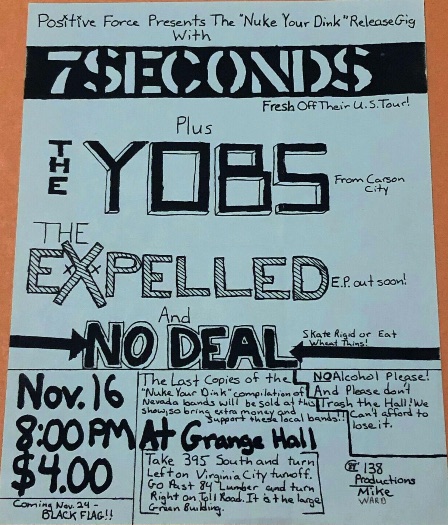 Positive Force Presents The "Nuke Your Dink" Release Gig
With
7SECONDS
Fresh Off Their U.S. Tour!
Plus
THE YOBS
From Carson
City
THE
EXPELLED
E.P. out soon!
And
NO DEAL
Skate Rigid or Eat
Wheat Thins!
Nov. 16
8:00 PM
$4.00
Coming Nov. 24-
BLACK FLAG!!
The Last Copies of the
"Nuke Your Dink" compilation of
Nevada bands will be sold at this
show, so bring extra money and
support these local bands!!
At Grange Hall
Take 395 South and turn
Left on Virginia City turnoff.
Go Past 84 Lumber and turn
Right on Toll Road. It is the large
Green Building.
NO Alcohol Please!
And Please don't
Trash the Hall! We
Can't afford to
lose it.
138
Productions
Mike
WARD